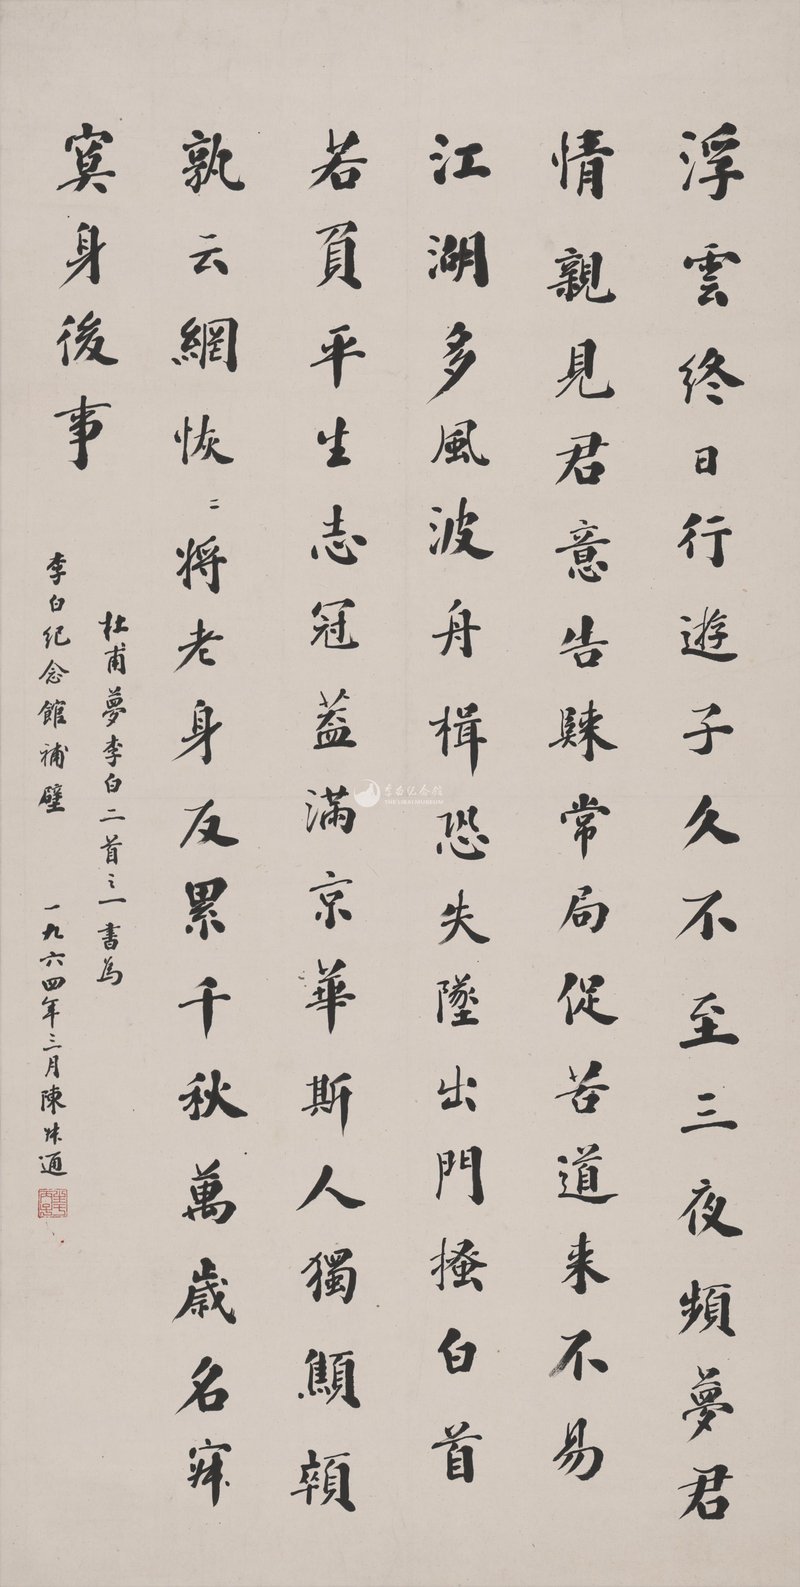 浮雲終日行遊子久不至三夜頻夢君
情親見君意告歸常局促苦道来不易
江湖多風波舟楫恐失墜出門搔白首
若負平生志冠蓋滿京華斯人獨顦顇
孰云網恢〻將老身反累千秋萬歲名寂
寞身後事
杜甫夢李白二首之一書為
李白紀念館補壁 一九六四年三月陳叔通
李白纪念馆
THE LIBAI MUSEUM